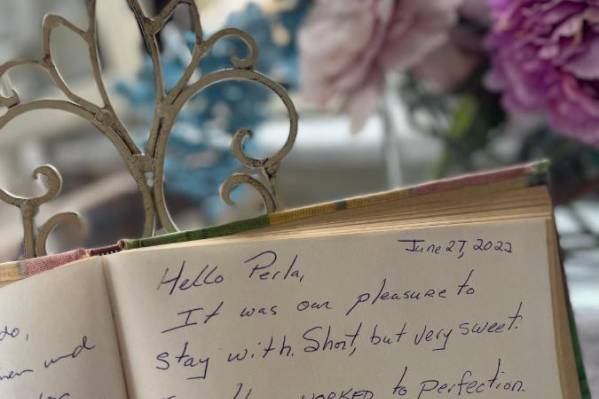 June 27, 2022
Hello Perla,
It was our pleasure to
stay with. Short, but very sweet.
WORKED to perfection.